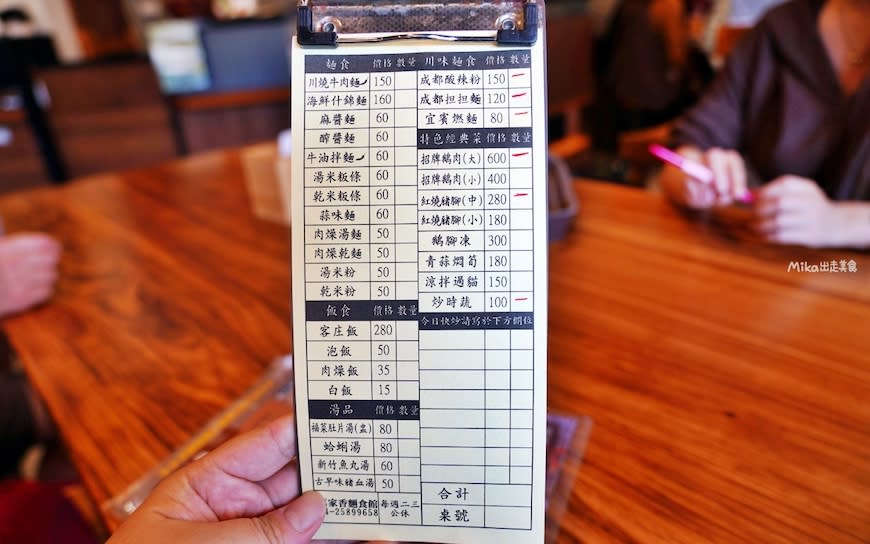 麵食 價格 數量
川燒牛肉麵 150
海鮮什錦麵 160
麻醬麵 60
醡醬麵 60
牛油拌麵 60
湯米粄條 60
乾米粄條 60
蒜味麵 60
肉燥湯麵 50
肉燥乾麵 50
湯米粉 50
乾米粉 50
飯食 價格 數量
客庄飯 280
泡飯 50
肉燥飯 35
白飯 15
湯品 價格 數量
福菜肚片湯(盅) 80
蛤蜊湯 80
新竹魚丸湯 60
古早味豬血湯 50
家香麵食館
25899658
每週二三
公休
川味麵食 價格 數量
成都酸辣粉 150
成都担担麵 120
宜賓燃麵 80
特色經典菜 價格 數量
招牌鵝肉(大) 600
招牌鵝肉(小) 400
紅燒豬腳(中) 280
紅燒豬腳(小) 180
鵝腳凍 300
青蒜燜筍 180
涼拌過貓 150
炒時蔬 100
今日快炒請寫於下方欄位
合計
桌號
Mika出走美食